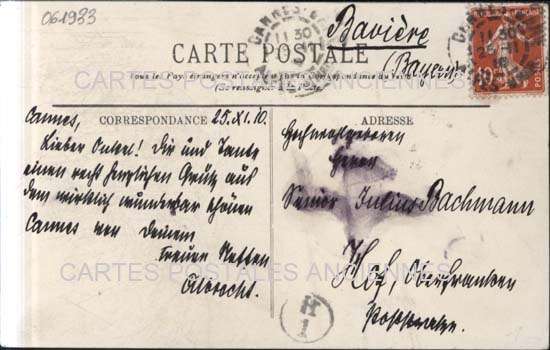 061933
Bavière
(Bayern)
CANNES
11 30
CARTE POSTALE
Tous les Pays étrangers n'acceptent pas la Correspondance au verso
(Se renseigner à la Poste)
CARTES POSTALES ANCIENNES
CORRESPONDANCE
Cannes, 25.XI.10.
Lieber Onkel! Dir und Tante
einen recht herzlichen Gruß aus
dem wirklich wunderbar schönen
Cannes von Deinem
treuen Neffen
Albrecht.
ADRESSE
Hochwohlgeboren
Herrn
Senior Julius Bachmann
Hof, Oberfranken
Poststraße.
CARTES POSTALES ANCIENNES
10
POSTES